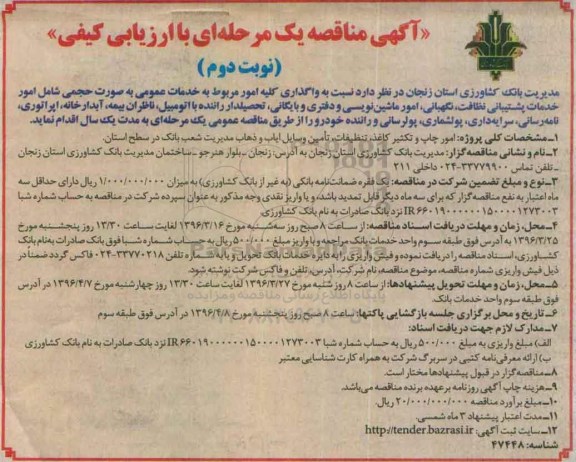 «آگهی مناقصه یک مرحله‌ای با ارزیابی کیفی»
(نوبت دوم)
مدیریت بانک کشاورزی استان زنجان در نظر دارد نسبت به واگذاری کلیه امور مربوط به خدمات عمومی به صورت حجمی شامل امور
خدمات پشتیبانی نظافت، نگهبانی، امور ماشین‌نویسی و دفتری و بایگانی، تحصیلدار راننده با اتومبیل، ناظران بیمه، آبدارخانه، اپراتوری،
نامه‌رسانی، سرایه‌داری، پولشماری، پولرسانی و راننده خودرو را از طریق مناقصه عمومی یک مرحله‌ای به مدت یک سال اقدام نماید.
۱ـ مشخصات کلی پروژه: امور چاپ و تکثیر کاغذ، تنظیفات، تأمین وسایل ایاب و ذهاب مدیریت شعب بانک در سطح استان.
۲ـ نام و نشانی مناقصه‌گزار: مدیریت بانک کشاورزی استان زنجان به آدرس: زنجان ـ بلوار هنرجو ـ ساختمان مدیریت بانک کشاورزی استان زنجان
ـ تلفن تماس ۳۳۷۷۹۹۰۰-۰۲۴ داخلی ۲۱۱
۳ـ نوع و مبلغ تضمین شرکت در مناقصه: یک فقره ضمانت‌نامه بانکی (به غیر از بانک کشاورزی) به میزان ۱/۰۰۰/۰۰۰/۰۰۰ ریال دارای حداقل سه
ماه اعتبار به نفع مناقصه‌گزار که برای سه ماه دیگر قابل تمدید باشد، و یا واریز نقدی وجه مذکور به عنوان سپرده شرکت در مناقصه به حساب شماره شبا
IR۶۶۰۱۹۰۰۰۰۰۰۰۱۵۰۰۰۰۱۲۷۳۰۰۳ نزد بانک صادرات به نام بانک کشاورزی
۴ـ محل، زمان و مهلت دریافت اسناد مناقصه: از ساعت ۸ صبح روز سه‌شنبه مورخ ۱۳۹۶/۳/۱۶ لغایت ساعت ۱۳/۳۰ روز پنجشنبه مورخ
۱۳۹۶/۳/۲۵ به آدرس فوق طبقه سوم واحد خدمات بانک مراجعه و با واریز مبلغ ۵۰۰/۰۰۰ ریال به حساب شماره شبا فوق بانک صادرات به‌نام بانک
کشاورزی، اسناد مناقصه را دریافت نموده و فیش واریزی را به دایره خدمات بانک تحویل و یا به شماره تلفن ۳۳۷۷۰۲۱۸-۰۲۴ فاکس گردد ضمناً در
ذیل فیش واریزی شماره مناقصه، موضوع مناقصه، نام شرکت، آدرس، تلفن و فاکس شرکت نوشته شود.
۵ـ محل، زمان و مهلت تحویل پیشنهادها: از ساعت ۸ روز شنبه مورخ ۱۳۹۶/۳/۲۷ لغایت ساعت ۱۳/۳۰ روز چهارشنبه مورخ ۱۳۹۶/۴/۷ در آدرس
فوق طبقه سوم واحد خدمات بانک.
۶ـ تاریخ و محل برگزاری جلسه بازگشایی پاکتها: ساعت ۸ صبح روز پنجشنبه مورخ ۱۳۹۶/۴/۸ در آدرس فوق طبقه سوم
۷ـ مدارک لازم جهت دریافت اسناد:
الف) مبلغ واریزی به مبلغ ۵۰۰/۰۰۰ ریال به حساب شماره شبا IR۶۶۰۱۹۰۰۰۰۰۰۰۱۵۰۰۰۰۱۲۷۳۰۰۳ نزد بانک صادرات به نام بانک کشاورزی
ب) ارائه معرفی‌نامه کتبی در سربرگ شرکت به همراه کارت شناسایی معتبر
۸ـ مناقصه‌گزار در قبول پیشنهادها مختار است.
۹ـ هزینه چاپ آگهی روزنامه برعهده برنده مناقصه می‌باشد.
۱۰ـ مبلغ برآورد مناقصه ۲۰/۰۰۰/۰۰۰/۰۰۰ ریال.
۱۱ـ مدت اعتبار پیشنهاد ۳ ماه شمسی.
۱۲ـ سایت ثبت آگهی: http://tender.bazrasi.ir
شناسه: ۴۷۴۴۸